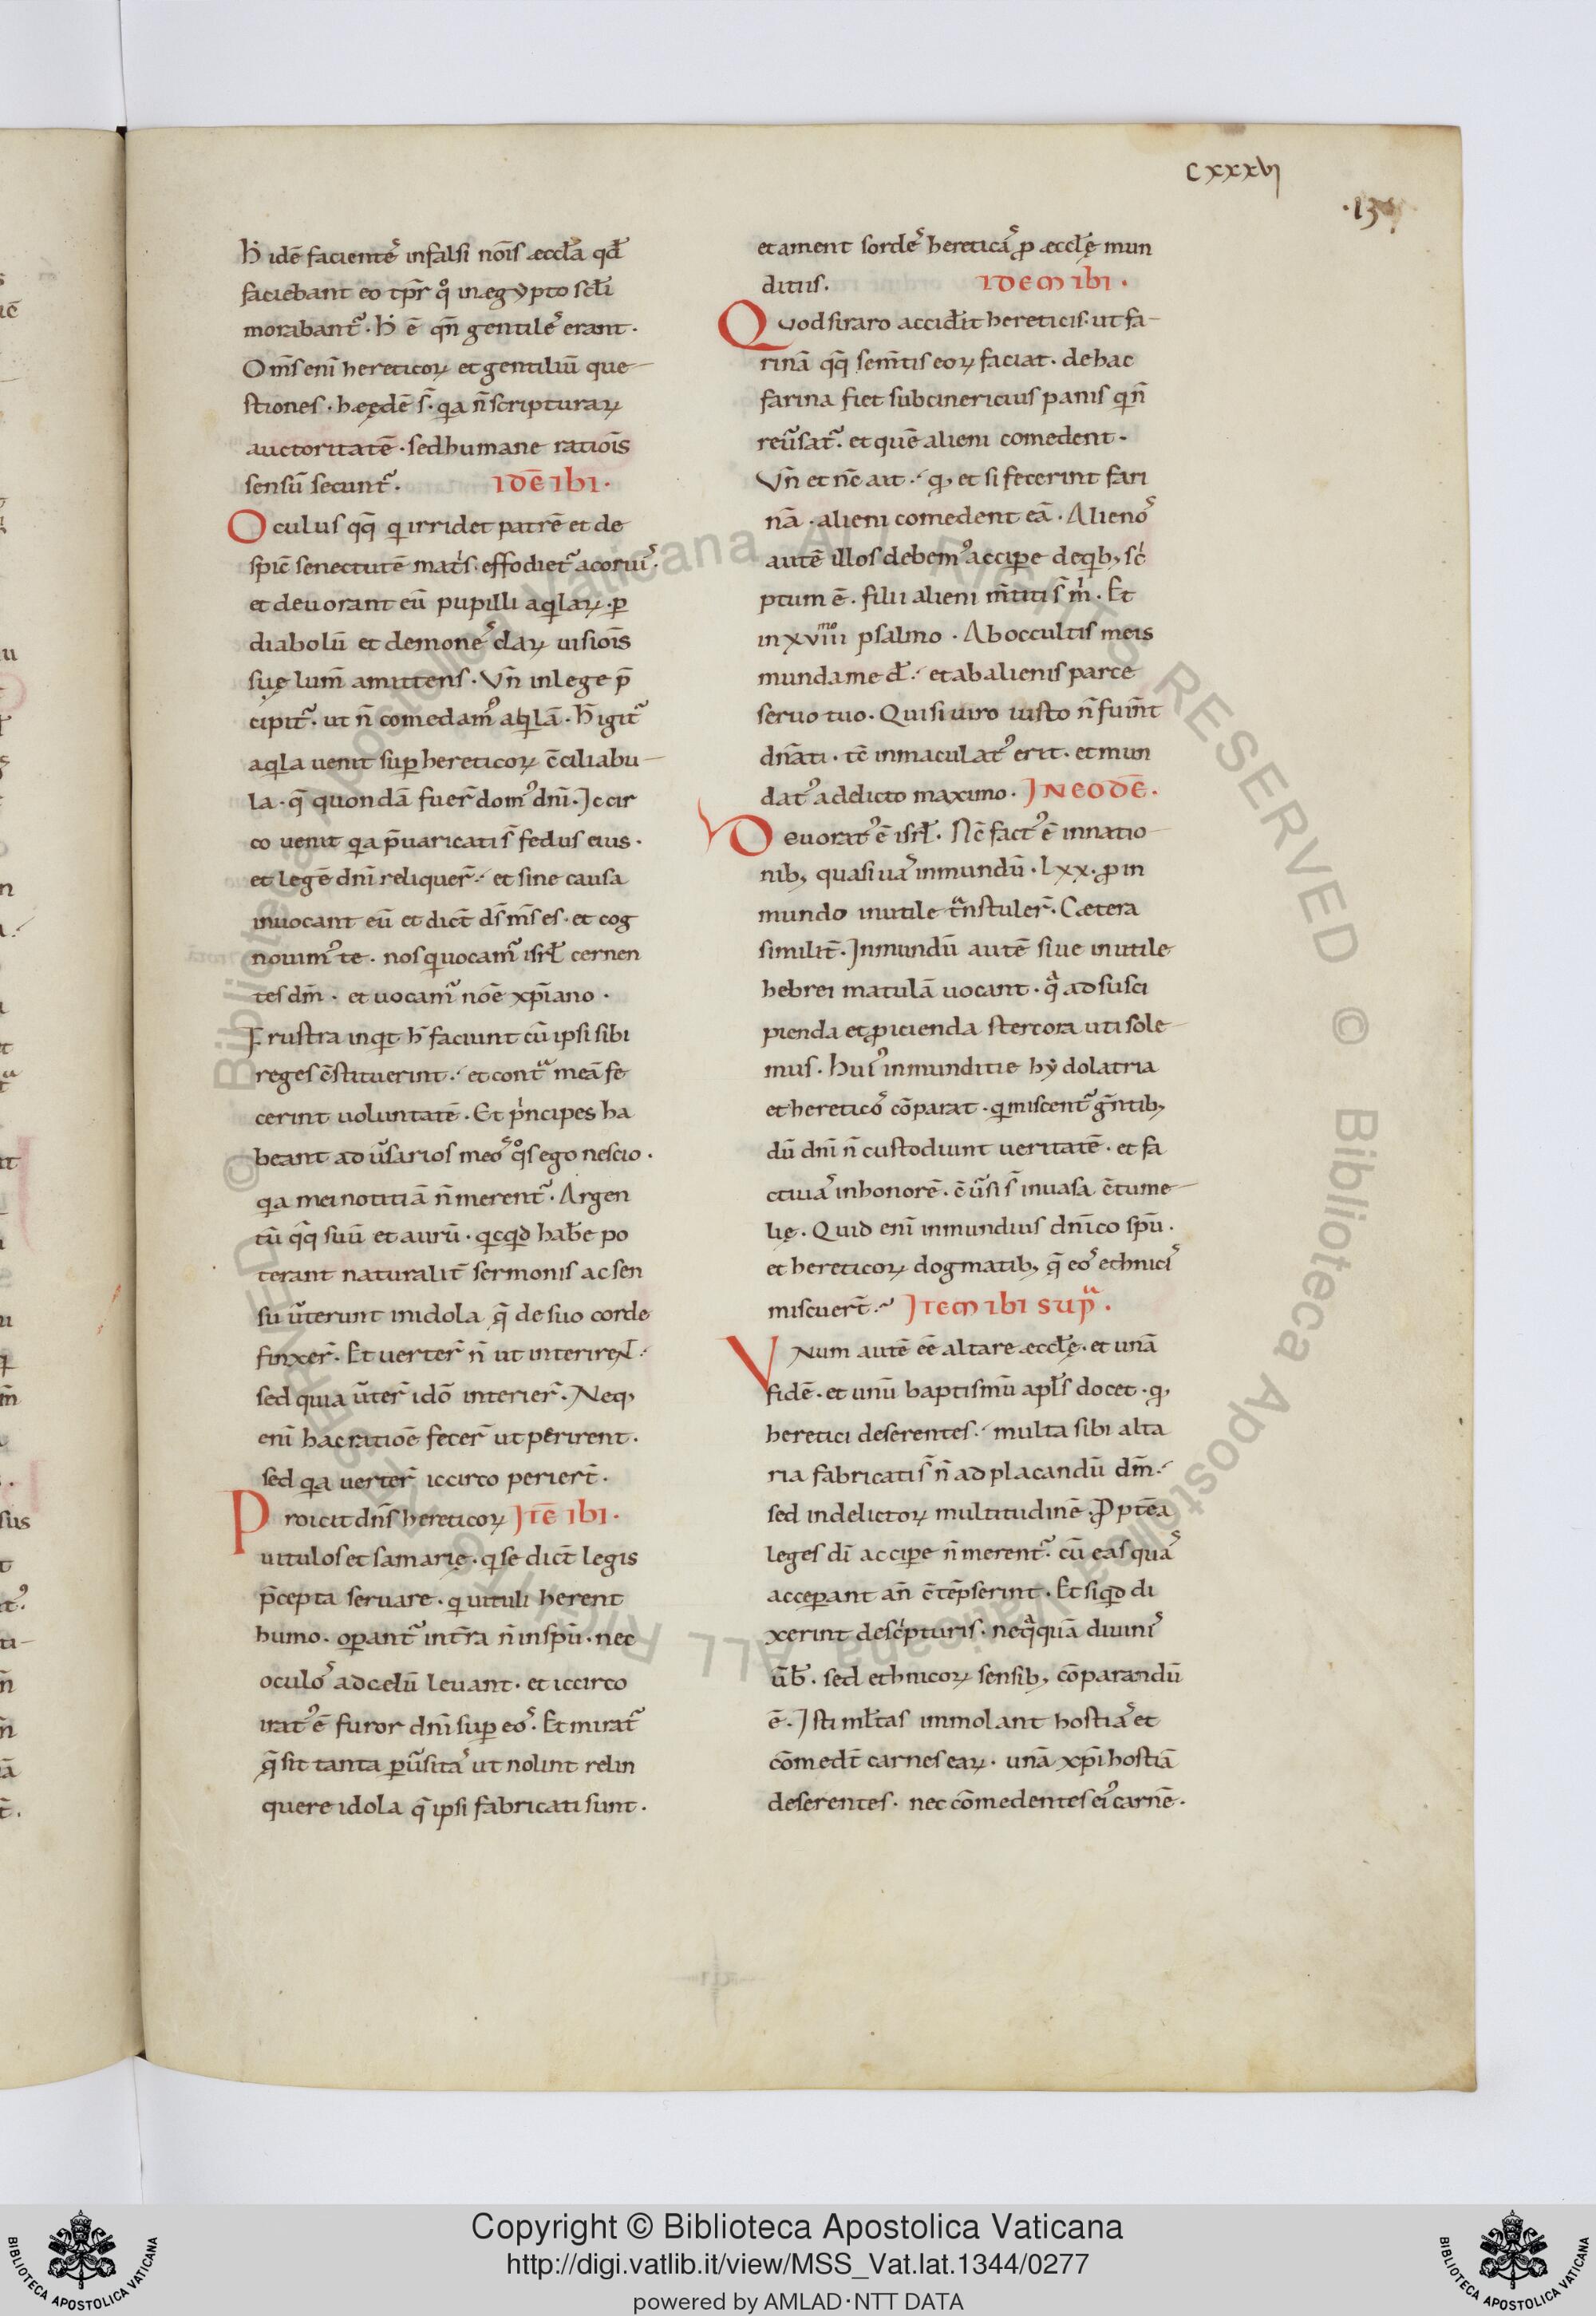 CXXXVI
.13
h̄ idē faciente᷒ in falsi nōis æccl̄a qđ
faciebant eo tp̄r qͦ in ægypto scl̄i
morabant᷒. h̄ ē qn̄ gentile᷒ erant.
Om̄s eni hereticoꝝ et gentiliū que-
stiones. hæedē s̄. qa n̄ scripturaꝝ
auctoritatē. sed humane ratiōis
sensū secunt᷒. IDĒ IBI.
Oculus qq̄ qi irridet patrē et de
spic̄ senectutē mat͛s. effodiet᷒ a corui᷒.
et deuorant eū pupilli aqilaꝝ. ꝑ
diabolū et demone᷒ claꝝ uisiōis
suę lum̄ amittens. Vn̄ in lege p̄
cipit᷒. ut n̄ comedam᷒ aqilā. h̄ igit᷒
aqila uenit suꝑ hereticoꝝ c̄ciliabu-
la. q̄ quondā fuer̄ dom᷒ dn̄i. Iccir
co uenit qa p̄uaricati s̄ fedus eius.
et legē dn̄i reliquer̄. et sine causa
inuocant eū et dict̄ ds̄ m̄s es. et cog
nouim᷒ te. nos qi uocam᷒ isrł cernen
tes dm̄. et uocam᷒ noē xp̄iano.
Frustra inqit h̄ faciunt cū ipsi sibi
reges c̄stituerint. et contͣ meā fe
cerint uoluntatē. Et p͛ncipes ha
beant adū̄sarios meo᷒ qͦs ego nescio.
qa mei notitiā n̄ merent᷒. Argen
tū qq̄ suū et aurū. qicqid hab̄e po
terant naturalit̄ sermonis ac sen
su ū̄terunt in idola q̄ de suo corde
finxer̄. Et uerter̄ n̄ ut interirent.
sed quia ū̄ter̄ idō interier̄. Neq;
eni hac ratiōe fecer̄ ut perirent.
sed qa uerter̄ iccirco perier̄t.
Proicit dn̄s hereticoꝝ ITĒ IBI.
uitulos et samarię. qi se dict̄ legis
p̄cepta seruare. qi uituli herent
humo. oꝑant᷒ in t̄ra n̄ in sp̄u. nec
oculo᷒ ad celū leuant. et iccirco
irat᷒ ē furor dn̄i suꝑ eo᷒. Et mirat᷒
q̄ sit tanta ꝑū̄sita᷒ ut nolint relin
quere idola q̄ ipsi fabricati sunt.
et ament sorde᷒ heretica᷒ ꝓ æccl̄ę mun
ditiis. IDEM IBI.
Quod si raro accid̄it hereticis. ut fa-
rinā qq̄ sem̄tis eoꝝ faciat. de hac
farina fiet subcinericius panis qi n̄
reū̄sat᷒. et quē alieni comedent.
Vn̄ et nc̄ ait. q; et si fecerint fari
nā. alieni comedent eā. Alieno᷒
autē illos debem᷒ accipe de qib; sc͛
ptum ē. filii alieni m̄titi s̄ m͛. Et
in xviiiiᵐᵒ psalmo. Ab occultis meis
munda me đ. et ab alienis parce
seruo tuo. Qui si uiro iusto n̄ fuir̄nt
dn̄ati. tc̄ inmaculat᷒ erit. et mun
dat᷒ a delicto maximo. IN EODĒ.
Deuorat᷒ ē isrł. Nc̄ fact᷒ ē in natio
nib; quasi ua᷒ inmundū. lxx. ꝓ in
mundo inutile t̄nstuler̄. Cætera
similit̄. Inmundū autē siue inutile
hebrei matulā uocant. qͣ ad susci
pienda et ꝓicienda stercora uti sole
mus. hui᷒ inmunditie hẏdolatria
et heretico᷒ cōparat. qi miscent᷒ ḡntib;
dū dn̄i n̄ custodiunt ueritatē. et fa
cti ua᷒ in honorē. c̄ū̄si s̄ in uasa c̄tume-
lię. Quid eni inmundius dn̄ico sp̄u.
et hereticoꝝ dogmatib; q̄ eo᷒ ethnici᷒
miscuer̄t. ITEM IBI SUPͣ.
VNum autē eē altare æccl̄ę. et unā
fidē. et unū baptismū apl̄s docet. q;
heretici deserentes. multa sibi alta
ria fabricati s̄ n̄ ad placandū dm̄.
sed in delictoꝝ multitudinē. Ꝓptēa
leges dī accipe n̄ merent᷒. cū eas qua᷒
acceꝑant an̄ c̄tēpserint. Et si qid di
xerint de sc͛pturis. neqͣquā diuini᷒
ū̄b̄. sed ethnicoꝝ sensib; cōparandū
ē. Isti ml̄tas immolant hostia᷒ et
cōmedt̄ carnes eaꝝ. unā xp̄i hostiā
deserentes. nec cōmedentes ei᷒ carnē.
© Biblioteca Apostolica Vaticana ALL RIGHTS RESERVED © Biblioteca Apostolica Vaticana ALL RIGHTS RESERVED
Copyright © Biblioteca Apostolica Vaticana
http://digi.vatlib.it/view/MSS_Vat.lat.1344/0277
powered by AMLAD·NTT DATA
BIBLIOTECA APOSTOLICA VATICANA
BIBLIOTECA APOSTOLICA VATICANA